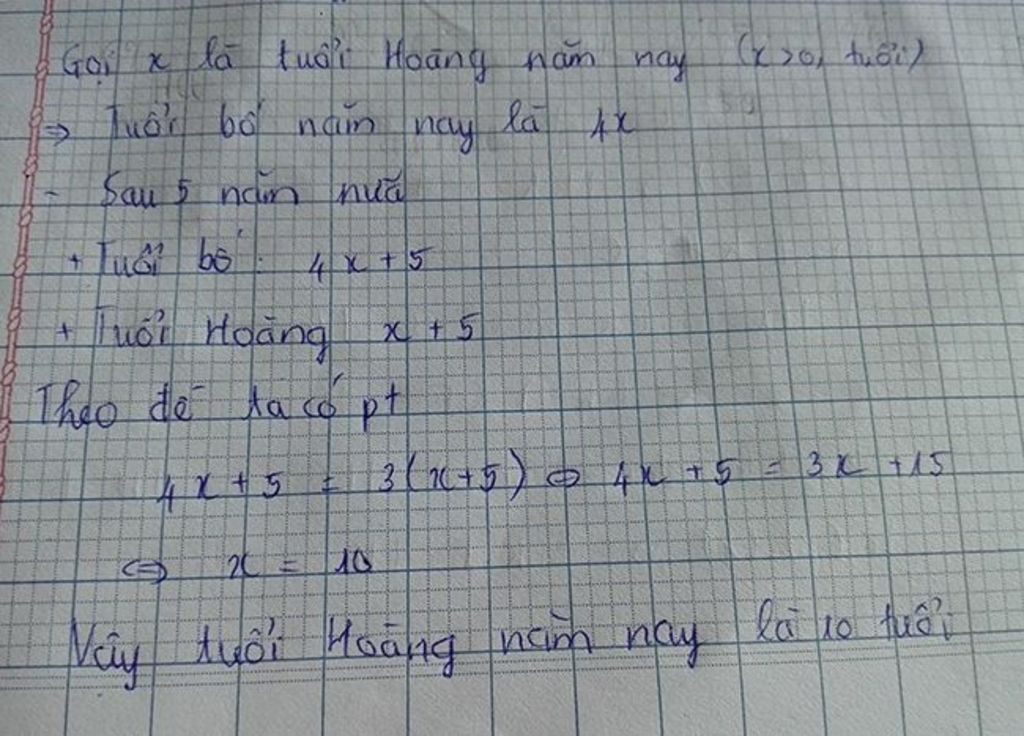 Gọi x là tuổi Hoàng năm nay (x>0, tuổi)
⇒ Tuổi bố năm nay là 4x
- Sau 5 năm nữa
+ Tuổi bố: 4x+5
+ Tuổi Hoàng x+5
Theo đề ta có pt
4x+5 = 3(x+5) ⇔ 4x+5 = 3x+15
⇔ x = 10
Vậy tuổi Hoàng năm nay là 10 tuổi